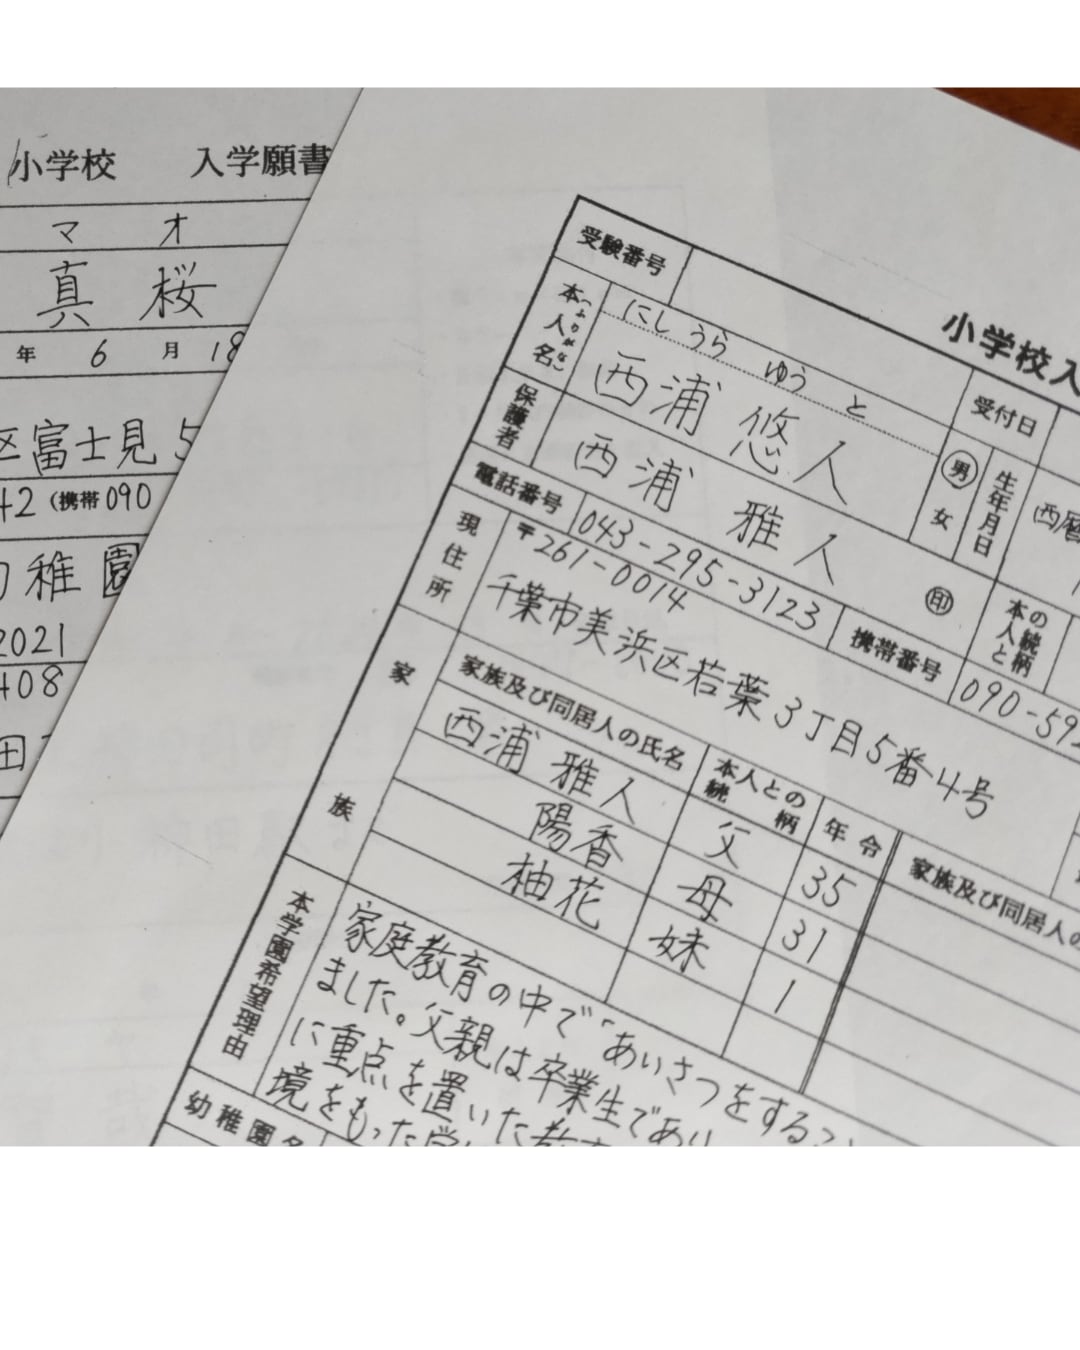 小学校 入学願書
マ オ
真 桜
年 6 月 18
区富士見 5
42 (携帯 090
稚園
2021
408
田
受験番号
小学校入
本人名 (ふりがな) にしうら ゆうと
西浦 悠人
男 女
受付日
生年月日
西暦
保護者 西浦 雅人 ㊞
本人との続柄
電話番号 043-295-3123
携帯番号 090-592
現住所 〒261-0014
千葉市美浜区若葉3丁目5番4号
家族
家族及び同居人の氏名 本人との続柄 年令 家族及び同居人の
西浦 雅人 父 35
陽香 母 31
柚花 妹 1
本学園希望理由
家庭教育の中で「あいさつをする
ました。父親は卒業生であり
に重点を置いた教
境をもった
幼稚園名